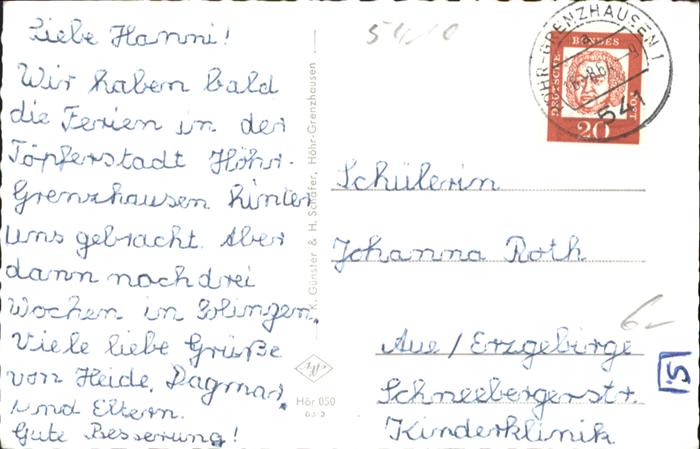 Liebe Hanni!
Wir haben bald
die Ferien in der
Töpferstadt Höhr-
Grenzhausen hinter
uns gebracht. Aber
dann noch drei
Wochen in Solingen.
Viele liebe Grüße
von Heide, Dagmar
und Eltern.
Gute Besserung!
K. Günster & H. Schäfer, Höhr-Grenzhausen
Hör 050
54/0
HÖHR-GRENZHAUSEN 1
541
DEUTSCHE
BUNDES
POST
20
Schülerin
Johanna Roth
Aue/Erzgebirge
Schneebergerstr.
Kinderklinik
6-
5